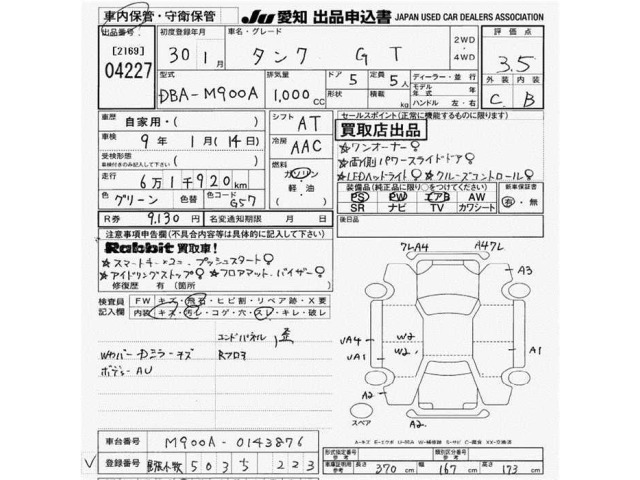 車内保管・守衛保管 JU 愛知 出品申込書 JAPAN USED CAR DEALERS ASSOCIATION
出品番号 初度登録年月 車名・グレード 2WD ・ 4WD 評価点
[2169] 04227 30年 1月 タンク GT 3.5
型式 排気量 ドア 定員 ディーラー・並行 外装 内装
DBA-M900A 1,000cc 5 5人 形状 積載 kg モデル年式 年 ハンドル 左・右 C B
車歴 自家用・( ) シフト AT セールスポイント(正常に機能するものに限り)
車検 9年 1月(14日) 冷房 AAC 買取店出品
受検形態 車検付きのみ記入して下さい ☆ワンオーナー
☆両側パワースライドドア
走行 6万1千920km 燃料 ガソリン・軽油 ☆LEDヘッドライト ☆クルーズコントロール
色 グリーン 色替 色コード G57 装備品(純正品に限り○をつけてください) 新車保証書
PS PW エアB AW 有・無
SR ナビ TV カワシート
R券 9,130円 名変通知期限 月 日 後日品
注意事項申告欄(不具合内容等は具体的に記入して下さい)
Rabbit 買取車!
☆スマートキー×2コ プッシュスタート
☆アイドリングストップ ☆フロアマット、バイザー
修復歴 有(箇所 )
検査員記入欄 FW キズ・飛石・ヒビ割・リペア跡・X要
内装 キズ・汚レ・コゲ・穴・スレ・キレ・破レ
エンドパネル 歪
Wカバー Dミラーキズ Rフロア
ボデー AU
7LA4 A47L
A3
UA4 W2
UA1 W2 A1
A2 A2
スペア
A-キズ E-エクボ U-凹み W-補修跡 S-サビ C-腐食 XX-交換済
車台番号 M900A-0143876 形式指定番号 類別区分番号
登録番号 尾張小牧 5035 223 車庫証明用参考 長さ 370cm 幅 167cm 高さ 173cm